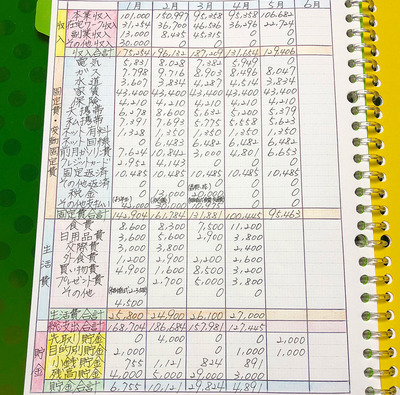 1月 2月 3月 4月 5月 6月
収入
本業収入 101,000 150,997 95,358 106,682
在宅ワーク収入 31,254 36,700 44,526 36,296 22,724
副業収入 13,000 8,435 45,315 0 0
その他収入 30,000 0 0 0
収入合計 175,254 96,132 187,209 131,654 129,406
固定費・変動固定費
電気 5,831 8,028 7,382 5,949 0
ガス 7,798 9,716 8,903 8,496 8,047
水道 3,607 3,834 4,287 4,514 3,834
家賃 43,400 43,400 43,400 43,400 43,400
保険 4,210 4,210 4,210 4,210 4,210
夫携帯 6,278 8,600 5,632 5,200 5,379
私携帯 7,717 7,693 5,775 5,558 5,623
ネット有料 1,328 1,350 1,350 1,350 1,350
ネット回線 0 6,483 6,482 6,482 6,482
前月ガソリン費 7,624 10,842 3,000 4,801 6,653
クレジットカード 2,952 4,143 0 0 0
固定返済 10,485 10,485 10,485 10,485 10,485
その他返済 0 0 0 0
税金 0 13,000 20,000 0 0
その他支払
固定費合計 142,904 161,784 131,881 100,445 95,463
生活費
食費 8,600 8,300 7,500 11,200
日用品費 3,600 5,600 2,900 3,800
交際費 3,000 3,800 0 2,400
外食費 1,200 2,900 2,200 2,600
買い物費 4,900 1,600 8,500 3,200
プレゼント費 0 2,700 5,000 3,800
その他 0 0 0
4,500
生活費合計 25,800 24,900 26,100 27,000
総支出合計 168,704 186,684 157,981 127,445
貯金
先取り貯金 0 4,000 0 0 2,000
目的別貯金 2,000 0 0 1,000 1,000
小銭貯金 755 1,121 824 891
残高貯金 4,000 5,000 29,000 3,000
貯金合計 6,755 10,121 29,824 4,891